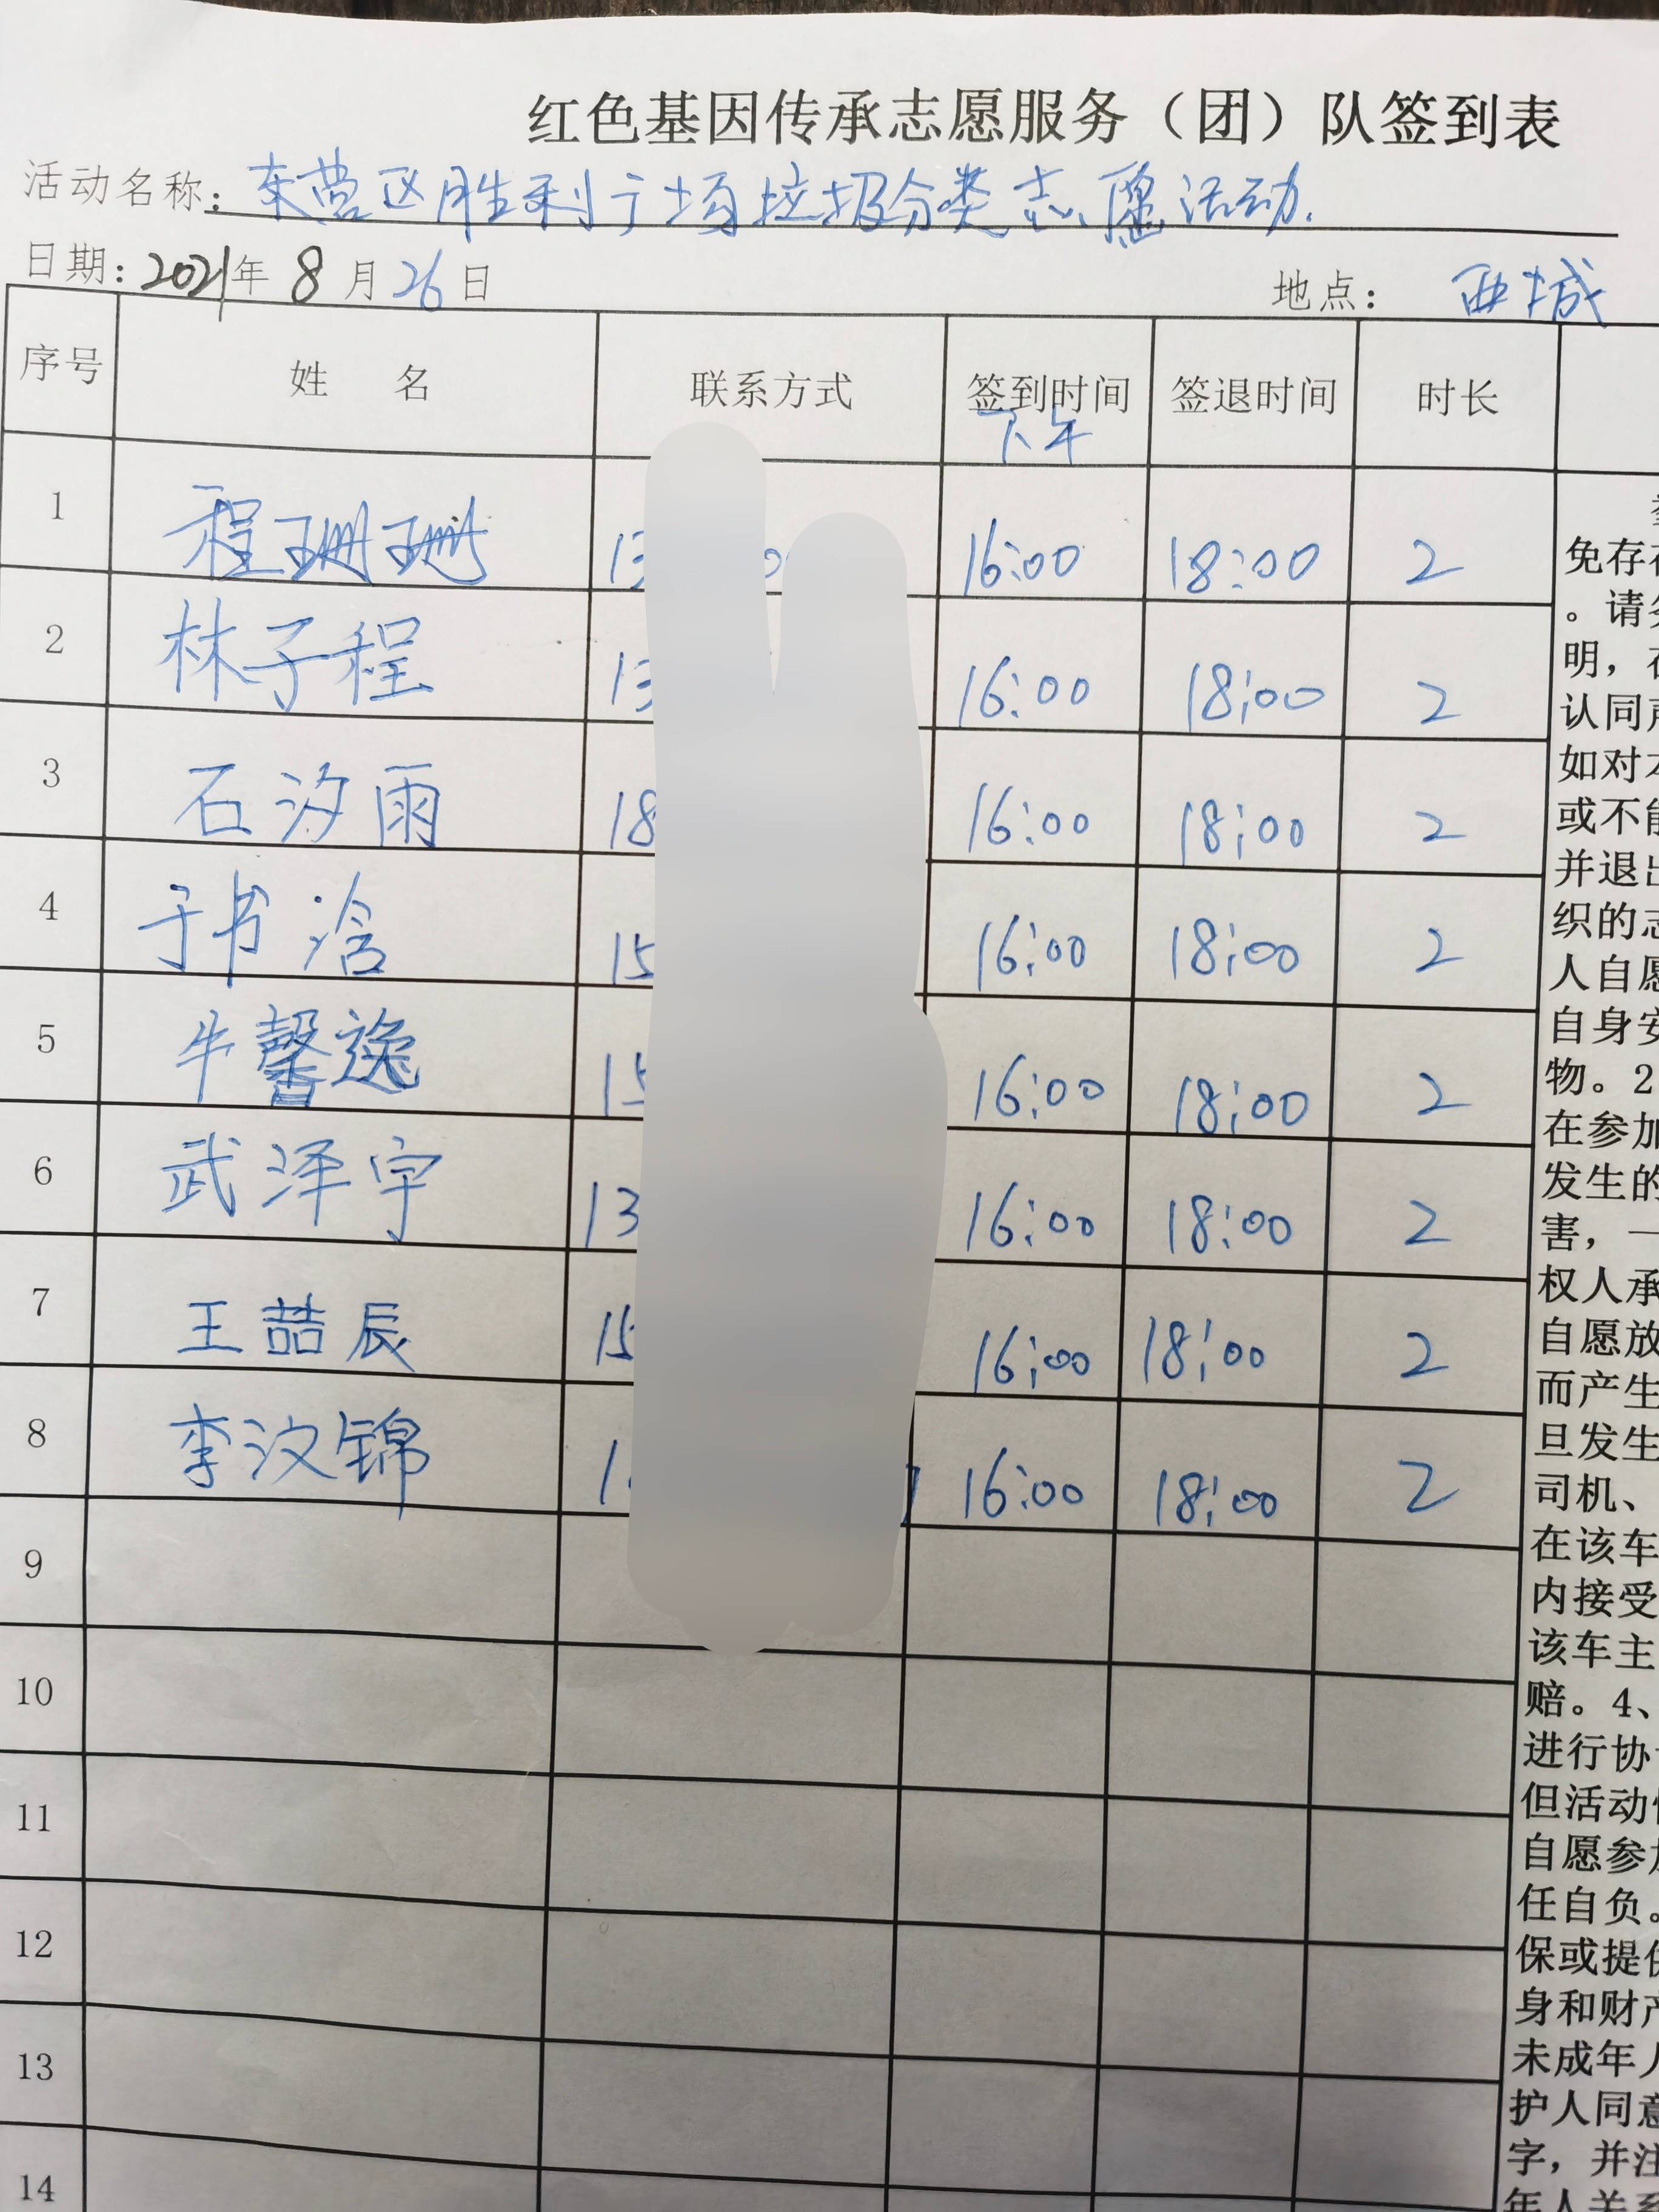 红色基因传承志愿服务（团）队签到表
活动名称：东营区胜利广场垃圾分类志愿活动.
日期：2021年 8 月 26 日 地点： 西城
序号 姓 名 联系方式 签到时间 签退时间 时长
下午
1 程珊珊 13 16:00 18:00 2
2 林子程 13 16:00 18:00 2
3 石汐雨 18 16:00 18:00 2
4 于书浛 15 16:00 18:00 2
5 牛馨逸 15 16:00 18:00 2
6 武泽宇 13 16:00 18:00 2
7 王喆辰 15 16:00 18:00 2
8 李汶锦 1 16:00 18:00 2
9
10
11
12
13
14
免存在
。请务
明，在
认同声
如对本
或不能
并退出
织的志
人自愿
自身安
物。2
在参加
发生的
害，一
权人承
自愿放
而产生
旦发生
司机、
在该车
内接受
该车主
赔。4、
进行协
但活动
自愿参加
任自负。
保或提供
身和财产
未成年人
护人同意
字，并注
年人关系